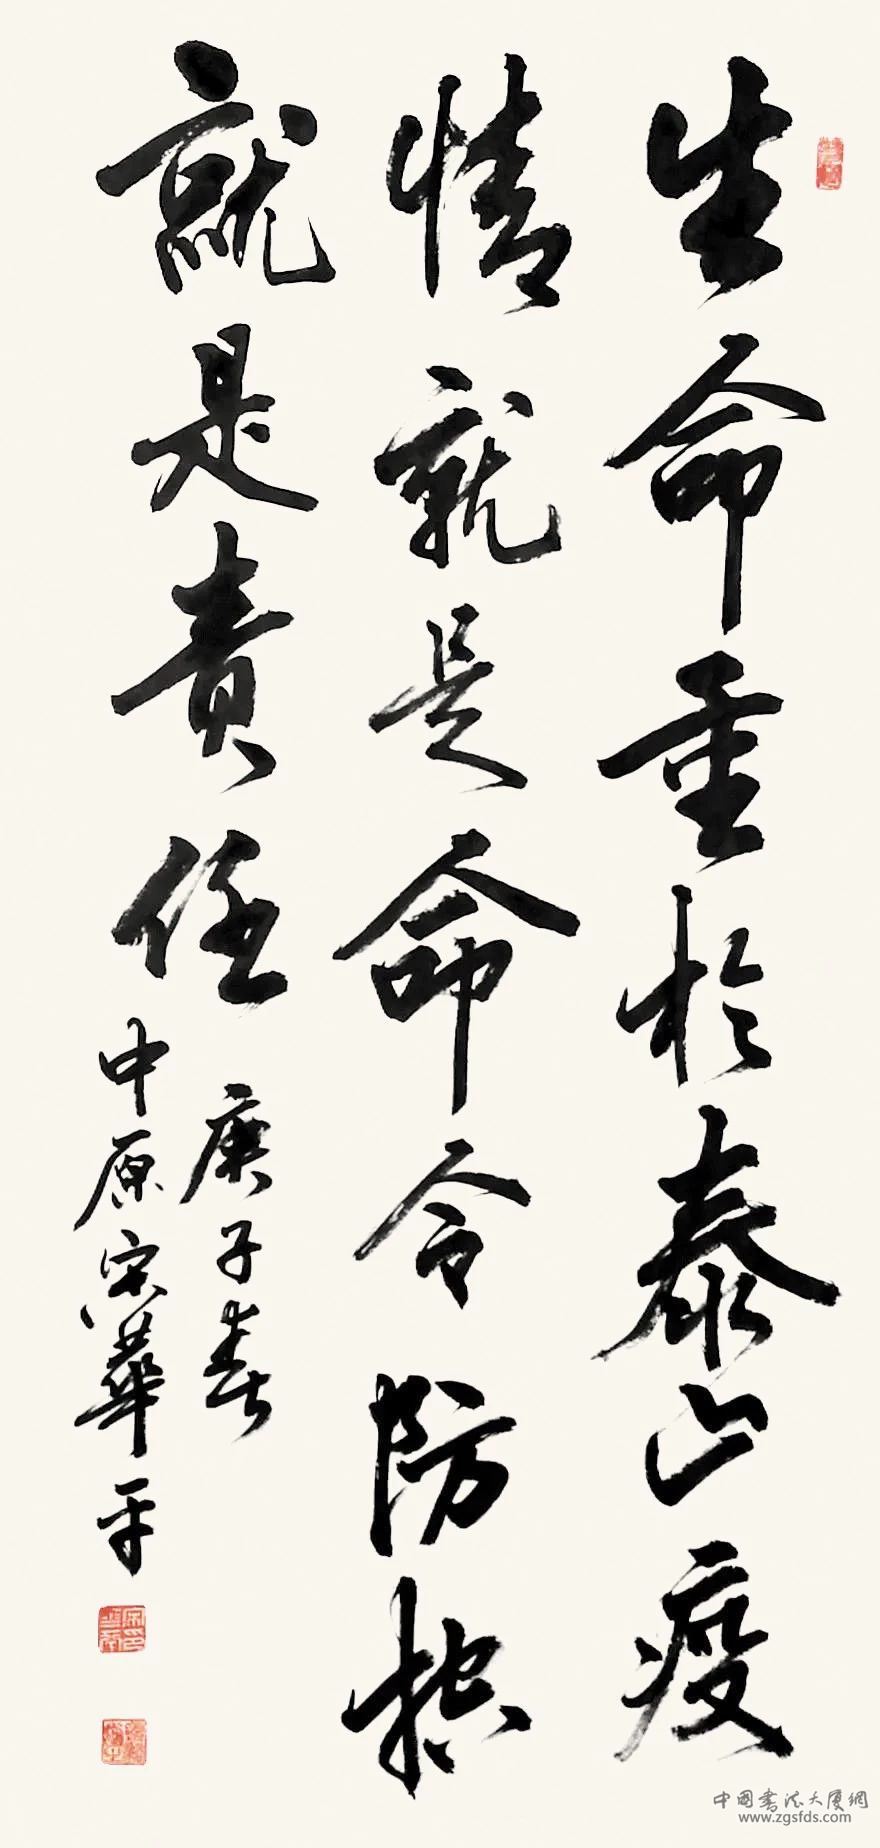 生命重於泰山疫
情就是命令防控
就是責任
庚子春
中原宋華平
中国书法大厦網
www.zgsfds.com